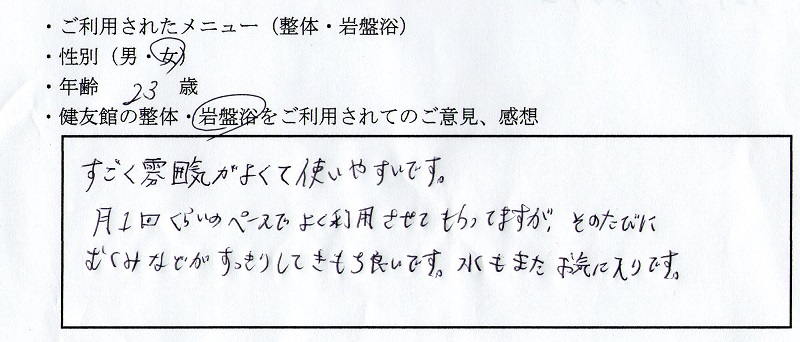 ・ご利用されたメニュー（整体・岩盤浴）
・性別（男・女）
・年齢 23 歳
・健友館の整体・岩盤浴をご利用されてのご意見、感想
すごく雰囲気がよくて使いやすいです。
月1回くらいのペースでよく利用させてもらってますが、そのたびに
むくみなどがすっきりしてきもち良いです。水もまたお気に入りです。